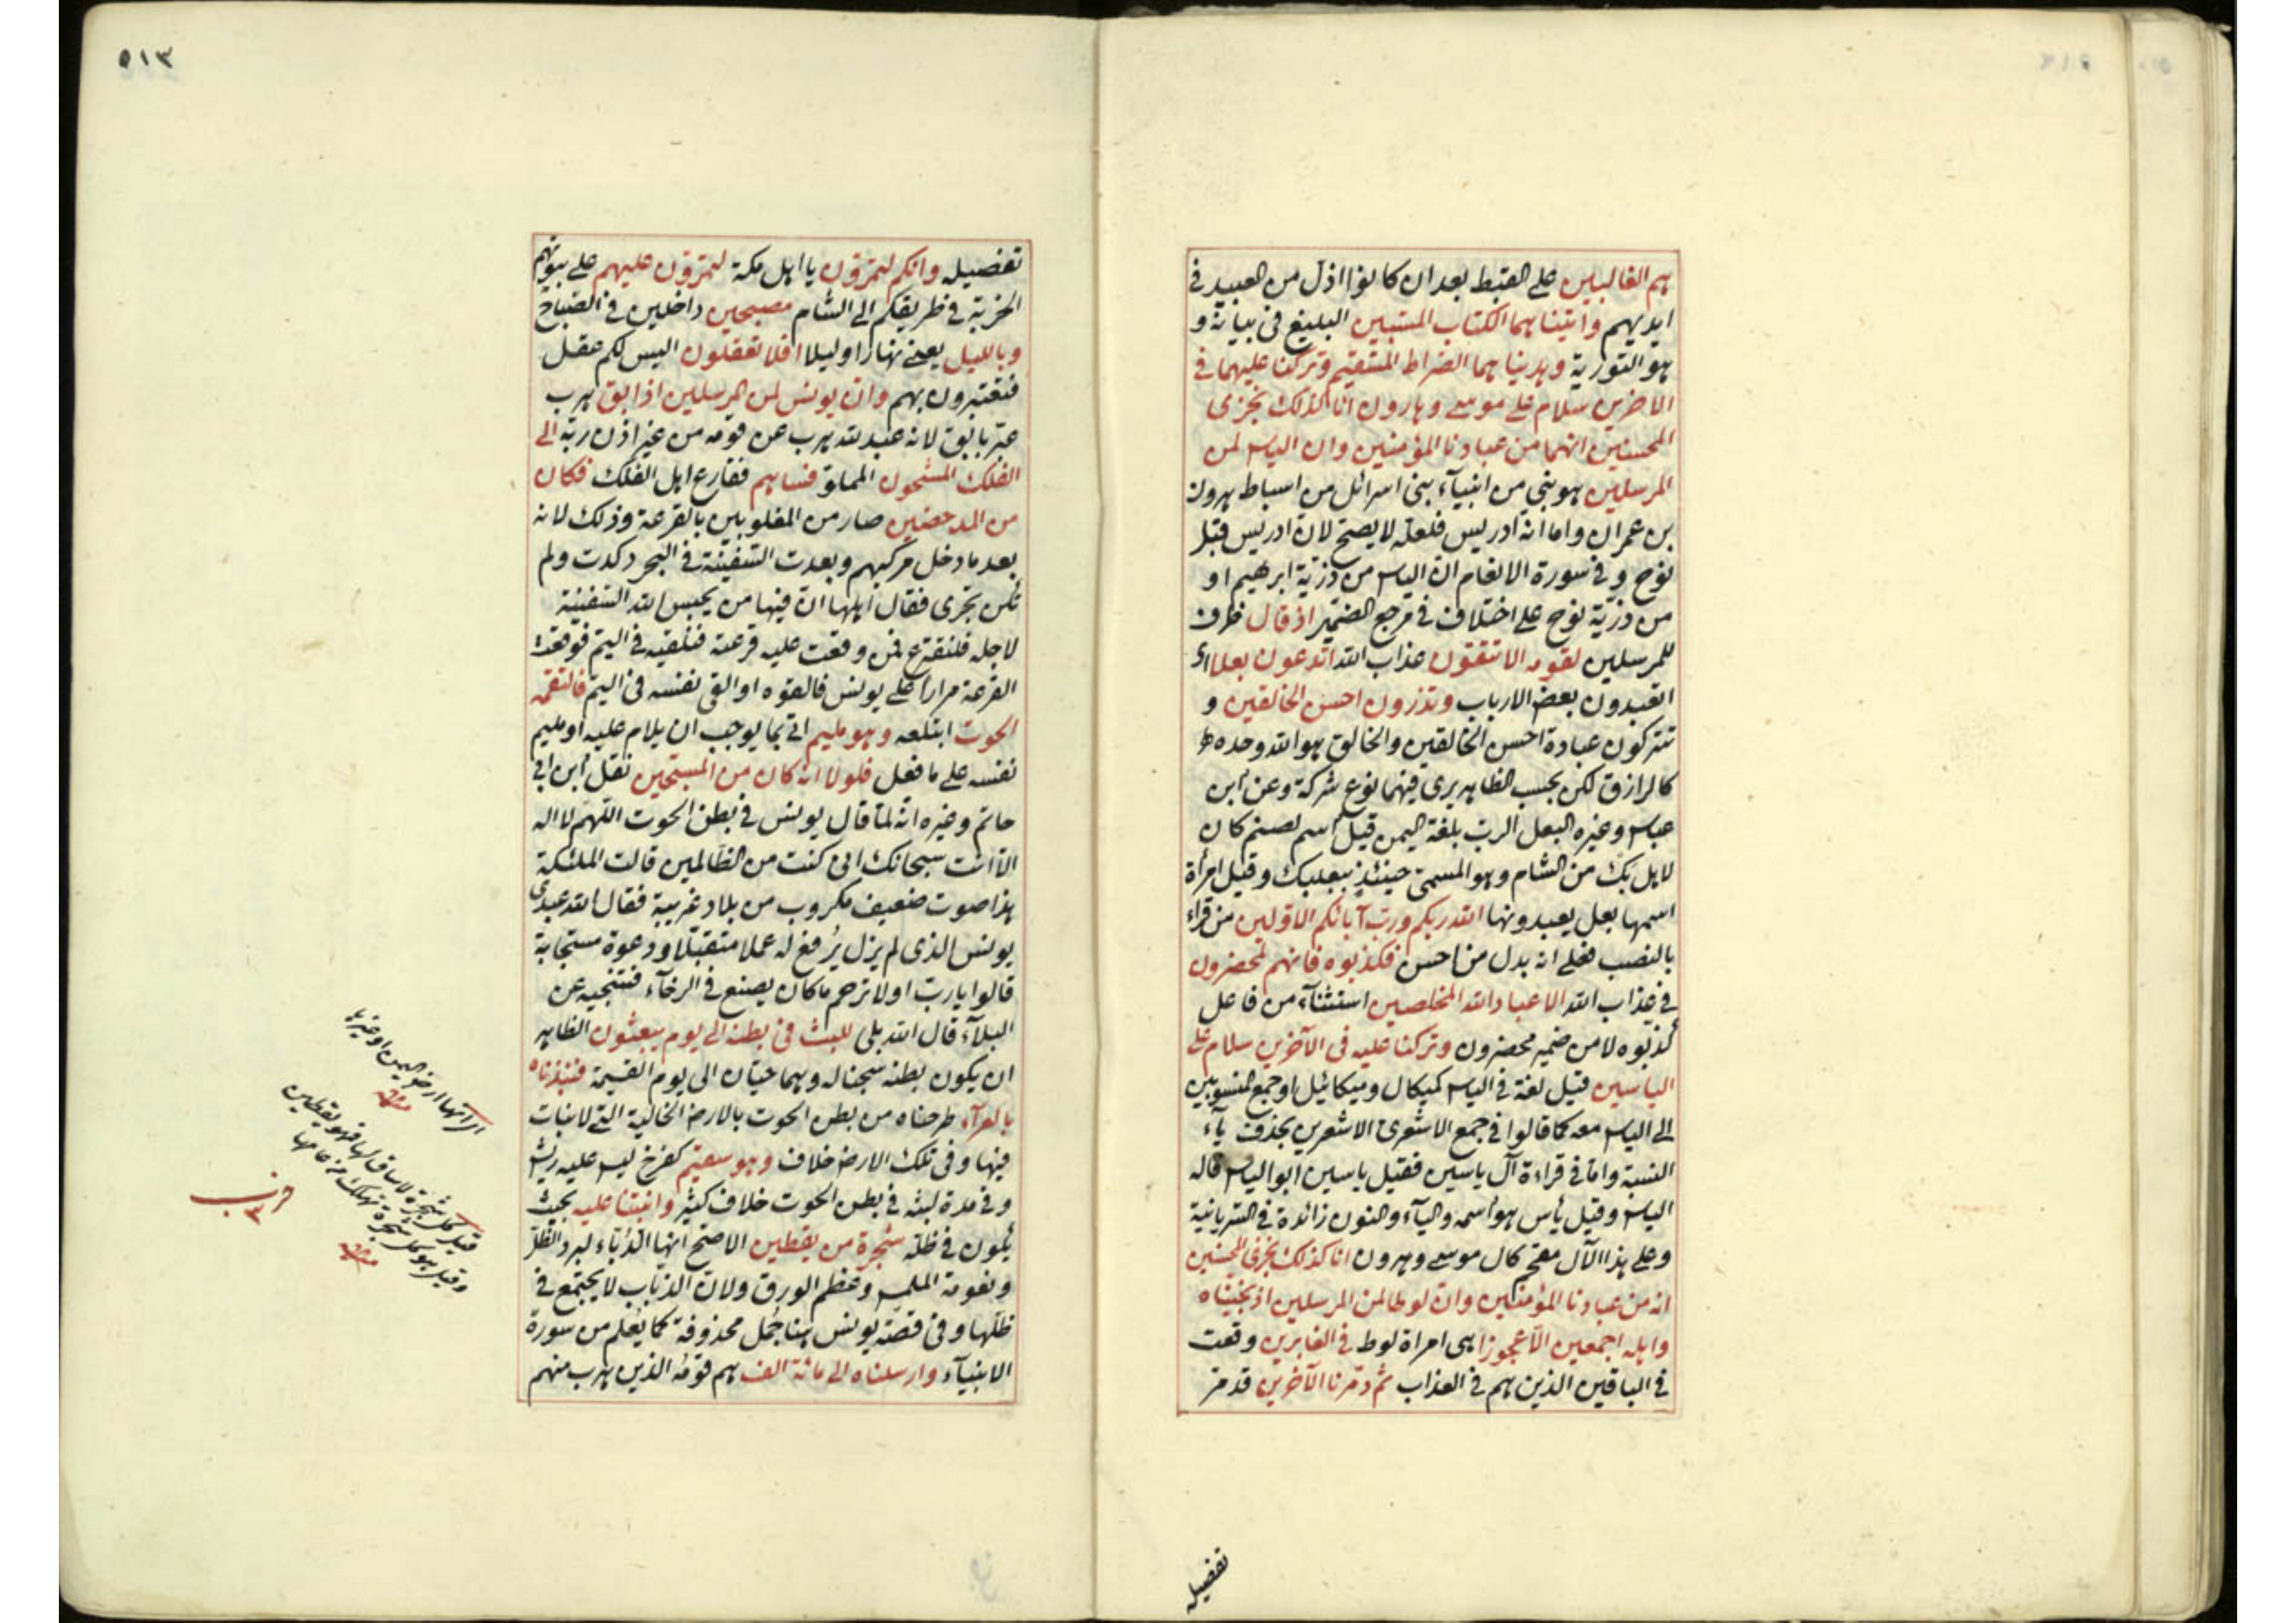 هم الغالبين على القبط بعد ان كانوا اذل من العبيد فى
ايديهم وآتيناهما الكتاب المستبين البليغ فى بيانه و
هو التورية وهديناهما الصراط المستقيم وتركنا عليهما فى
الآخرين سلام على موسى وهارون انا كذلك نجزى
المحسنين انهما من عبادنا المؤمنين وان الياس لمن
المرسلين هو نبي من انبيآء بنى اسرائل من اسباط هرون
بن عمران واما انه ادريس فلعله لا يصح لان ادريس قبل
نوح وفى سورة الانعام ان الياس من ذرّية ابرهيم او
من ذرّية نوح على اختلاف فى مرجع الضمير اذ قال ظرف
للمرسلين لقومه الا تتقون عذاب الله اتدعون بعلا اى
اتعبدون بعض الارباب وتذرون احسن الخالقين و
تتركون عبادة احسن الخالقين والخالق هو الله وحده
كالرازق لكن بحسب الظاهر يرى فيهما نوع شركة وعن ابن
عباس وغيره البعل الربّ بلغة اليمن قيل اسم لصنم كان
لاهل بك من الشام وهو المسمى حينئذ ببعلبك وقيل امرأة
اسمها بعل يعبدونها الله ربكم وربّ آبائكم الاولين من قراء
بالنصب فعلى انه بدل من احسن فكذبوه فانهم لمحضرون
فى عذاب الله الا عباد الله المخلصين استثنآء من فاعل
كذبوه لا من ضمير محضرون وتركنا عليه فى الآخرين سلام على
الياسين قيل لغة فى الياس كميكال وميكائيل او جمع المنسوبين
الى الياس معه كما قالوا فى جمع الاشعرى الاشعرين بحذف يآء
النسبة واما فى قراءة آل ياسين فقيل ياسين ابو الياس قاله
الياس وقيل يأس هو اسمه واليآء والنون زائدة فى السريانية
وعلى هذا الآل مقحم كال موسى وهرون انا كذلك نجزى المحسنين
انه من عبادنا المؤمنين وان لوطا لمن المرسلين اذ نجيناه
واهله اجمعين الّا عجوزا هى امراة لوط فى الغابرين وقعت
فى الباقين الذين هم فى العذاب ثم دمّرنا الآخرين قد مرّ
تفصيله
٥١٣
تفصيله وانكم لتمرّون يا اهل مكة لتمرّون عليهم على بيوتهم
الخربة فى طريقكم الى الشام مصبحين داخلين فى الصباح
وبالليل يعنى نهارا او ليلا افلا تعقلون اليس لكم عقل
فتعتبرون بهم وان يونس لمن المرسلين اذ ابق هرب
عبّر بابق لانه عبد لله هرب عن قومه من غير اذن ربّه الى
الفلك المشحون المملوّ فساهم فقارع اهل الفلك فكان
من المدحضين صار من المغلوبين بالقرعة وذلك لانه
بعد ما دخل مركبهم وبعدت السفينة فى البحر ركدت ولم
تكن تجرى فقال اهلها ان فيها من يحبس الله السفينة
لاجله فلنقترع فمن وقعت عليه قرعته فنلقيه فى اليم فوقعت
القرعة مرارا على يونس فالقوه او القى نفسه فى اليم فالتقمه
الحوت ابتلعه وهو مليم اتى بما يوجب ان يلام عليه او مليم
نفسه على ما فعل فلولا انه كان من المسبّحين نقل ابن ابى
حاتم وغيره انه لما قال يونس فى بطن الحوت اللهم لا اله
الا انت سبحانك انى كنت من الظالمين قالت الملئكة
هذا صوت ضعيف مكروب من بلاد غريبة فقال الله عبدى
يونس الذى لم يزل يُرفع له عملا متقبّلا ودعوة مستجابة
قالوا يا ربّ اولا ترحم ما كان يصنع فى الرخآء فتنجيه عن
البلآء قال الله بلى للبث فى بطنه الى يوم يبعثون الظاهر
ان يكون بطنه سجنا له وهما حيّان الى يوم القيمة فنبذناه
بالعرآء طرحناه من بطن الحوت بالارض الخالية التى لا نبات
فيها وفى تلك الارض خلاف وهو سقيم كفرخ ليس عليه ريش
وفى مدة لبثه فى بطن الحوت خلاف كثير وانبتنا عليه بحيث
يكون فى ظله شجرة من يقطين الاصح انها الدُبّاء لبرد الظلّ
ونعومة الملمس وعظم الورق ولان الذباب لا يجتمع فى
ظلّها وفى قصّة يونس هنا جُمل محذوفة كما يُعلم من سورة
الانبيآء وارسلناه الى مائة الف هم قومه الذين هرب منهم
انها ارض اليمن او غيرها
منه
قيل كل شجرة لا ساق لها فهو يقطين
وقيل هو كل شجرة تهلك من عامها
منه
حزب